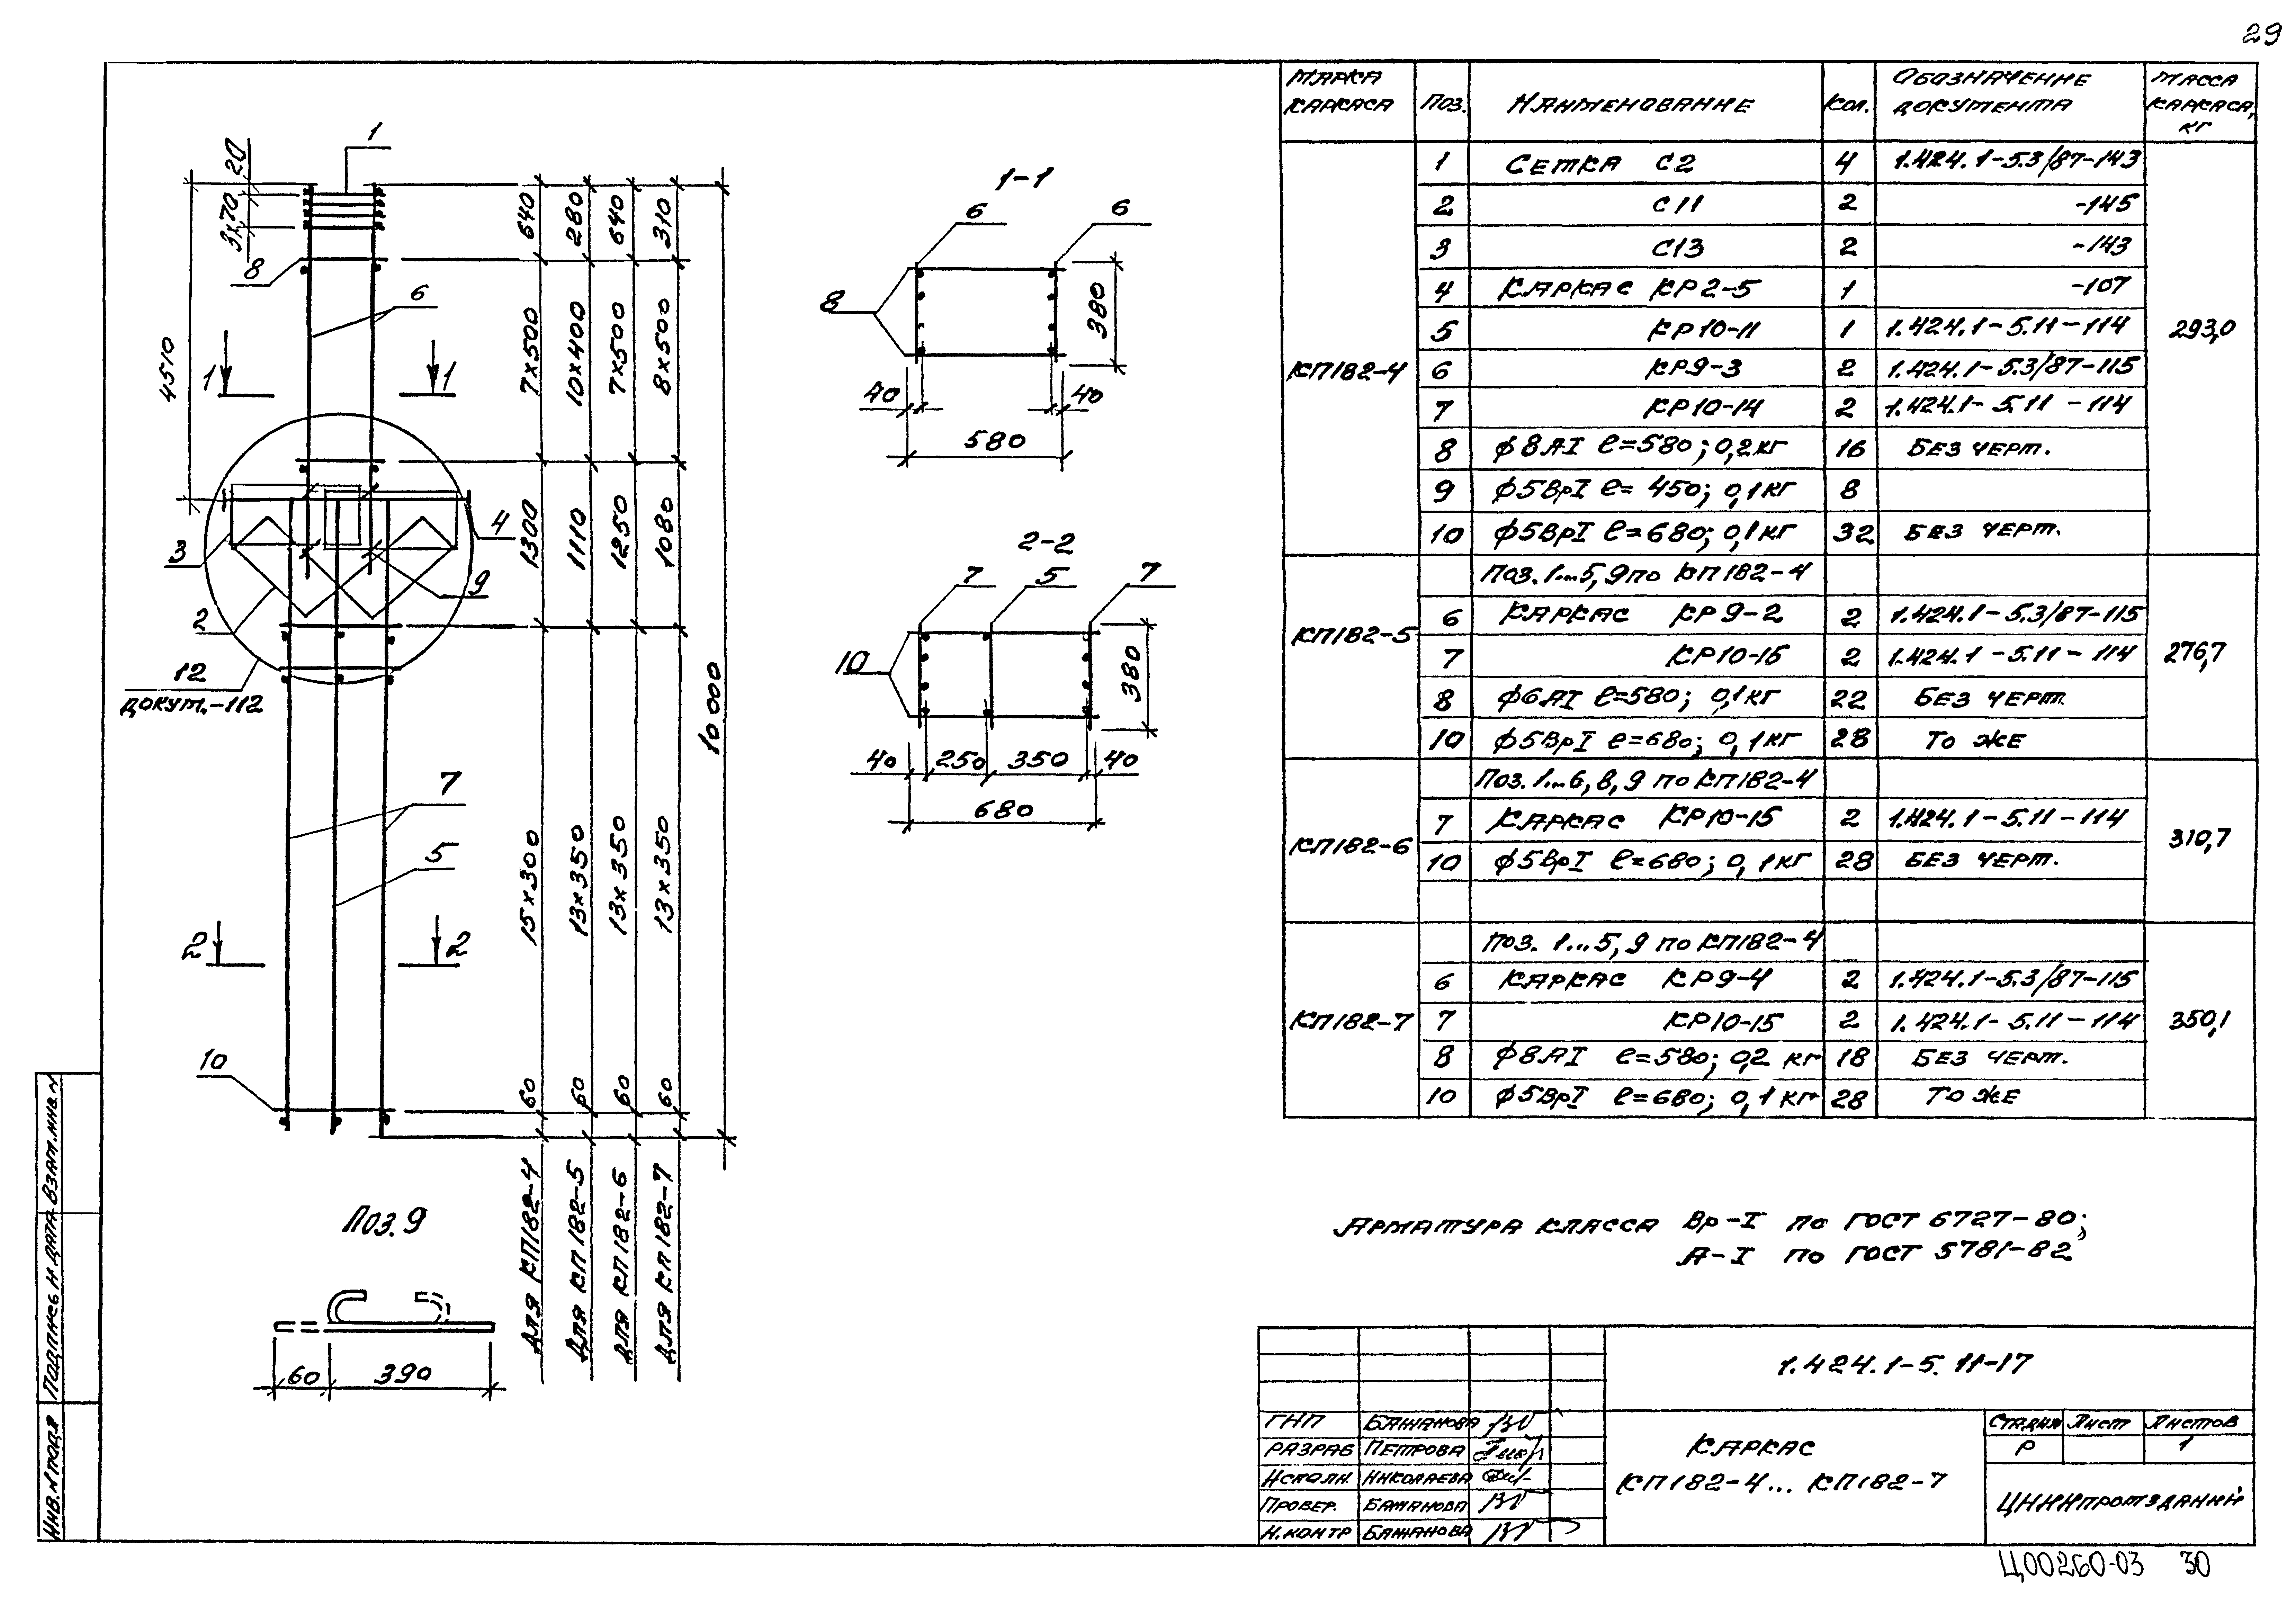 29
МАРКА КАРКАСА ПОЗ. НАИМЕНОВАНИЕ КОЛ. ОБОЗНАЧЕНИЕ ДОКУМЕНТА МАССА КАРКАСА, КГ
КП182-4 293,0
1 СЕТКА С2 4 1.424.1-5.3/87-143
2 С11 2 -145
3 С13 2 -143
4 КАРКАС КР2-5 1 -107
5 КР10-11 1 1.424.1-5.11-114
6 КР9-3 2 1.424.1-5.3/87-115
7 КР10-14 2 1.424.1-5.11-114
8 ϕ8АI ℓ=580; 0,2кг 16 БЕЗ ЧЕРТ.
9 ϕ5ВрI ℓ=450; 0,1кг 8
10 ϕ5ВрI ℓ=680; 0,1кг 32 БЕЗ ЧЕРТ.
КП182-5 276,7
Поз. 1...5, 9 по КП182-4
6 КАРКАС КР9-2 2 1.424.1-5.3/87-115
7 КР10-15 2 1.424.1-5.11-114
8 ϕ6АI ℓ=580; 0,1кг 22 БЕЗ ЧЕРТ.
10 ϕ5ВрI ℓ=680; 0,1кг 28 ТО ЖЕ
КП182-6 310,7
Поз. 1...6, 8, 9 по КП182-4
7 КАРКАС КР10-15 2 1.424.1-5.11-114
10 ϕ5ВрI ℓ=680; 0,1кг 28 БЕЗ ЧЕРТ.
КП182-7 350,1
Поз. 1...5, 9 по КП182-4
6 КАРКАС КР9-4 2 1.424.1-5.3/87-115
7 КР10-15 2 1.424.1-5.11-114
8 ϕ8АI ℓ=580; 0,2 кг 18 БЕЗ ЧЕРТ.
10 ϕ5ВрI ℓ=680; 0,1 кг 28 ТО ЖЕ
1
20
3х70
8
6
4510
1 1
4
3
9
2
12
ДОКУМ.-112
7
5
2 2
10
640 280 640 310
7х500 10х400 7х500 8х500
1300 1110 1250 1080
15х300 13х350 13х350 13х350
60 60 60 60
10 000
ДЛЯ КП182-4
ДЛЯ КП182-5
ДЛЯ КП182-6
ДЛЯ КП182-7
1-1
6 6
8
380
40 40
580
2-2
7 5 7
10
380
40 250 350 40
680
Поз. 9
60 390
АРМАТУРА КЛАССА Вр-I по ГОСТ 6727-80;
А-I по ГОСТ 5781-82
1.424.1-5.11-17
ГИП БАЖАНОВА
РАЗРАБ ПЕТРОВА
ИСПОЛН. НИКОЛАЕВА
ПРОВЕР. БАЖАНОВА
Н.КОНТР БАЖАНОВА
КАРКАС
КП182-4... КП182-7
СТАДИЯ ЛИСТ ЛИСТОВ
Р 1
ЦНИИПРОМЗДАНИЙ
ИНВ.N ПОДЛ ПОДПИСЬ И ДАТА ВЗАМ.ИНВ.N
Ц00260-03 30